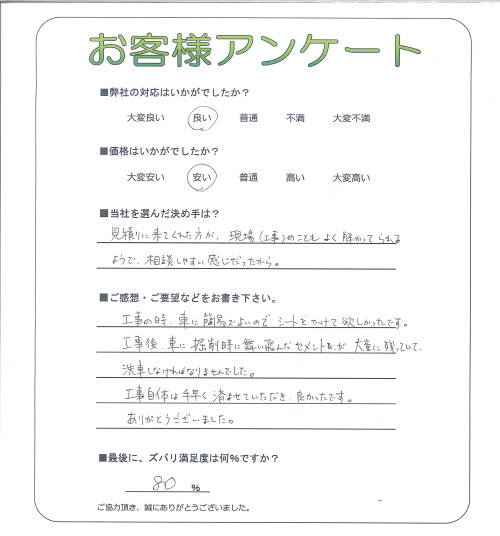 お客様アンケート
■弊社の対応はいかがでしたか?
大変良い 良い 普通 不満 大変不満
■価格はいかがでしたか?
大変安い 安い 普通 高い 大変高い
■当社を選んだ決め手は?
見積りに来てくれた方が、現場(工事)のこともよく解かってられる
ようで、相談しやすい感じだったから。
■ご感想・ご要望などをお書き下さい。
工事の時、車に簡易でよいので シートをかけて欲しかったです。
工事後、車に 掘削時に舞い飛んだセメントが 大量に残っていて、
洗車しなければなりませんでした。
工事自体は手早く済ませていただき、良かったです。
ありがとうございました。
■最後に、ズバリ満足度は何%ですか?
80 %
ご協力頂き、誠にありがとうございました。